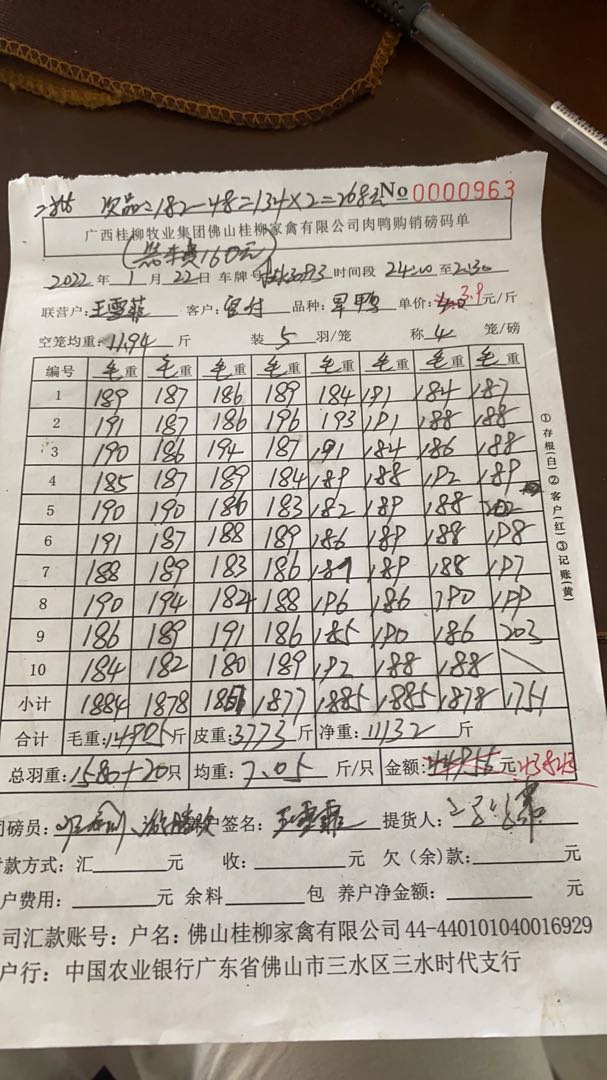 次品=182-48=134×2=268元 No 0000963
广西桂柳牧业集团佛山桂柳家禽有限公司肉鸭购销磅码单
(装车费160元)
2022 年 1 月 22 日 车牌号 时间段 24:00 至 2:30
联营户: 王雪菲 客户: 品种: 旱鸭 单价: 3.9 元/斤
空笼均重: 11.94 斤 装 5 羽/笼 称 4 笼/磅
编号 毛重 毛重 毛重 毛重 毛重 毛重 毛重 毛重
1 189 187 186 189 184 191 184 187
2 191 187 186 196 193 191 188 188
3 190 186 194 187 191 184 186 188
4 185 187 189 184 189 188 192 189
5 190 190 186 183 182 189 188 202
6 191 187 188 189 186 189 188 198
7 188 189 183 186 187 189 188 197
8 190 194 182 188 196 186 190 199
9 186 189 191 186 185 190 186 203
10 184 182 180 189 192 188 188
小计 1884 1878 1877 1885 1885 1878 1751
合计 毛重: 14905 斤 皮重: 3773 斤 净重: 11132 斤
总羽重: 1580+20 只 均重: 7.05 斤/只 金额: 44956 元
司磅员: 户签名: 王雪菲 提货人:
付款方式: 汇 元 收: 元 欠(余)款: 元
户费用: 元 余料 包 养户净金额: 元
司汇款账号: 户名: 佛山桂柳家禽有限公司 44-440101040016929
户行: 中国农业银行广东省佛山市三水区三水时代支行
①存根(白)②客户(红)③记账(黄)